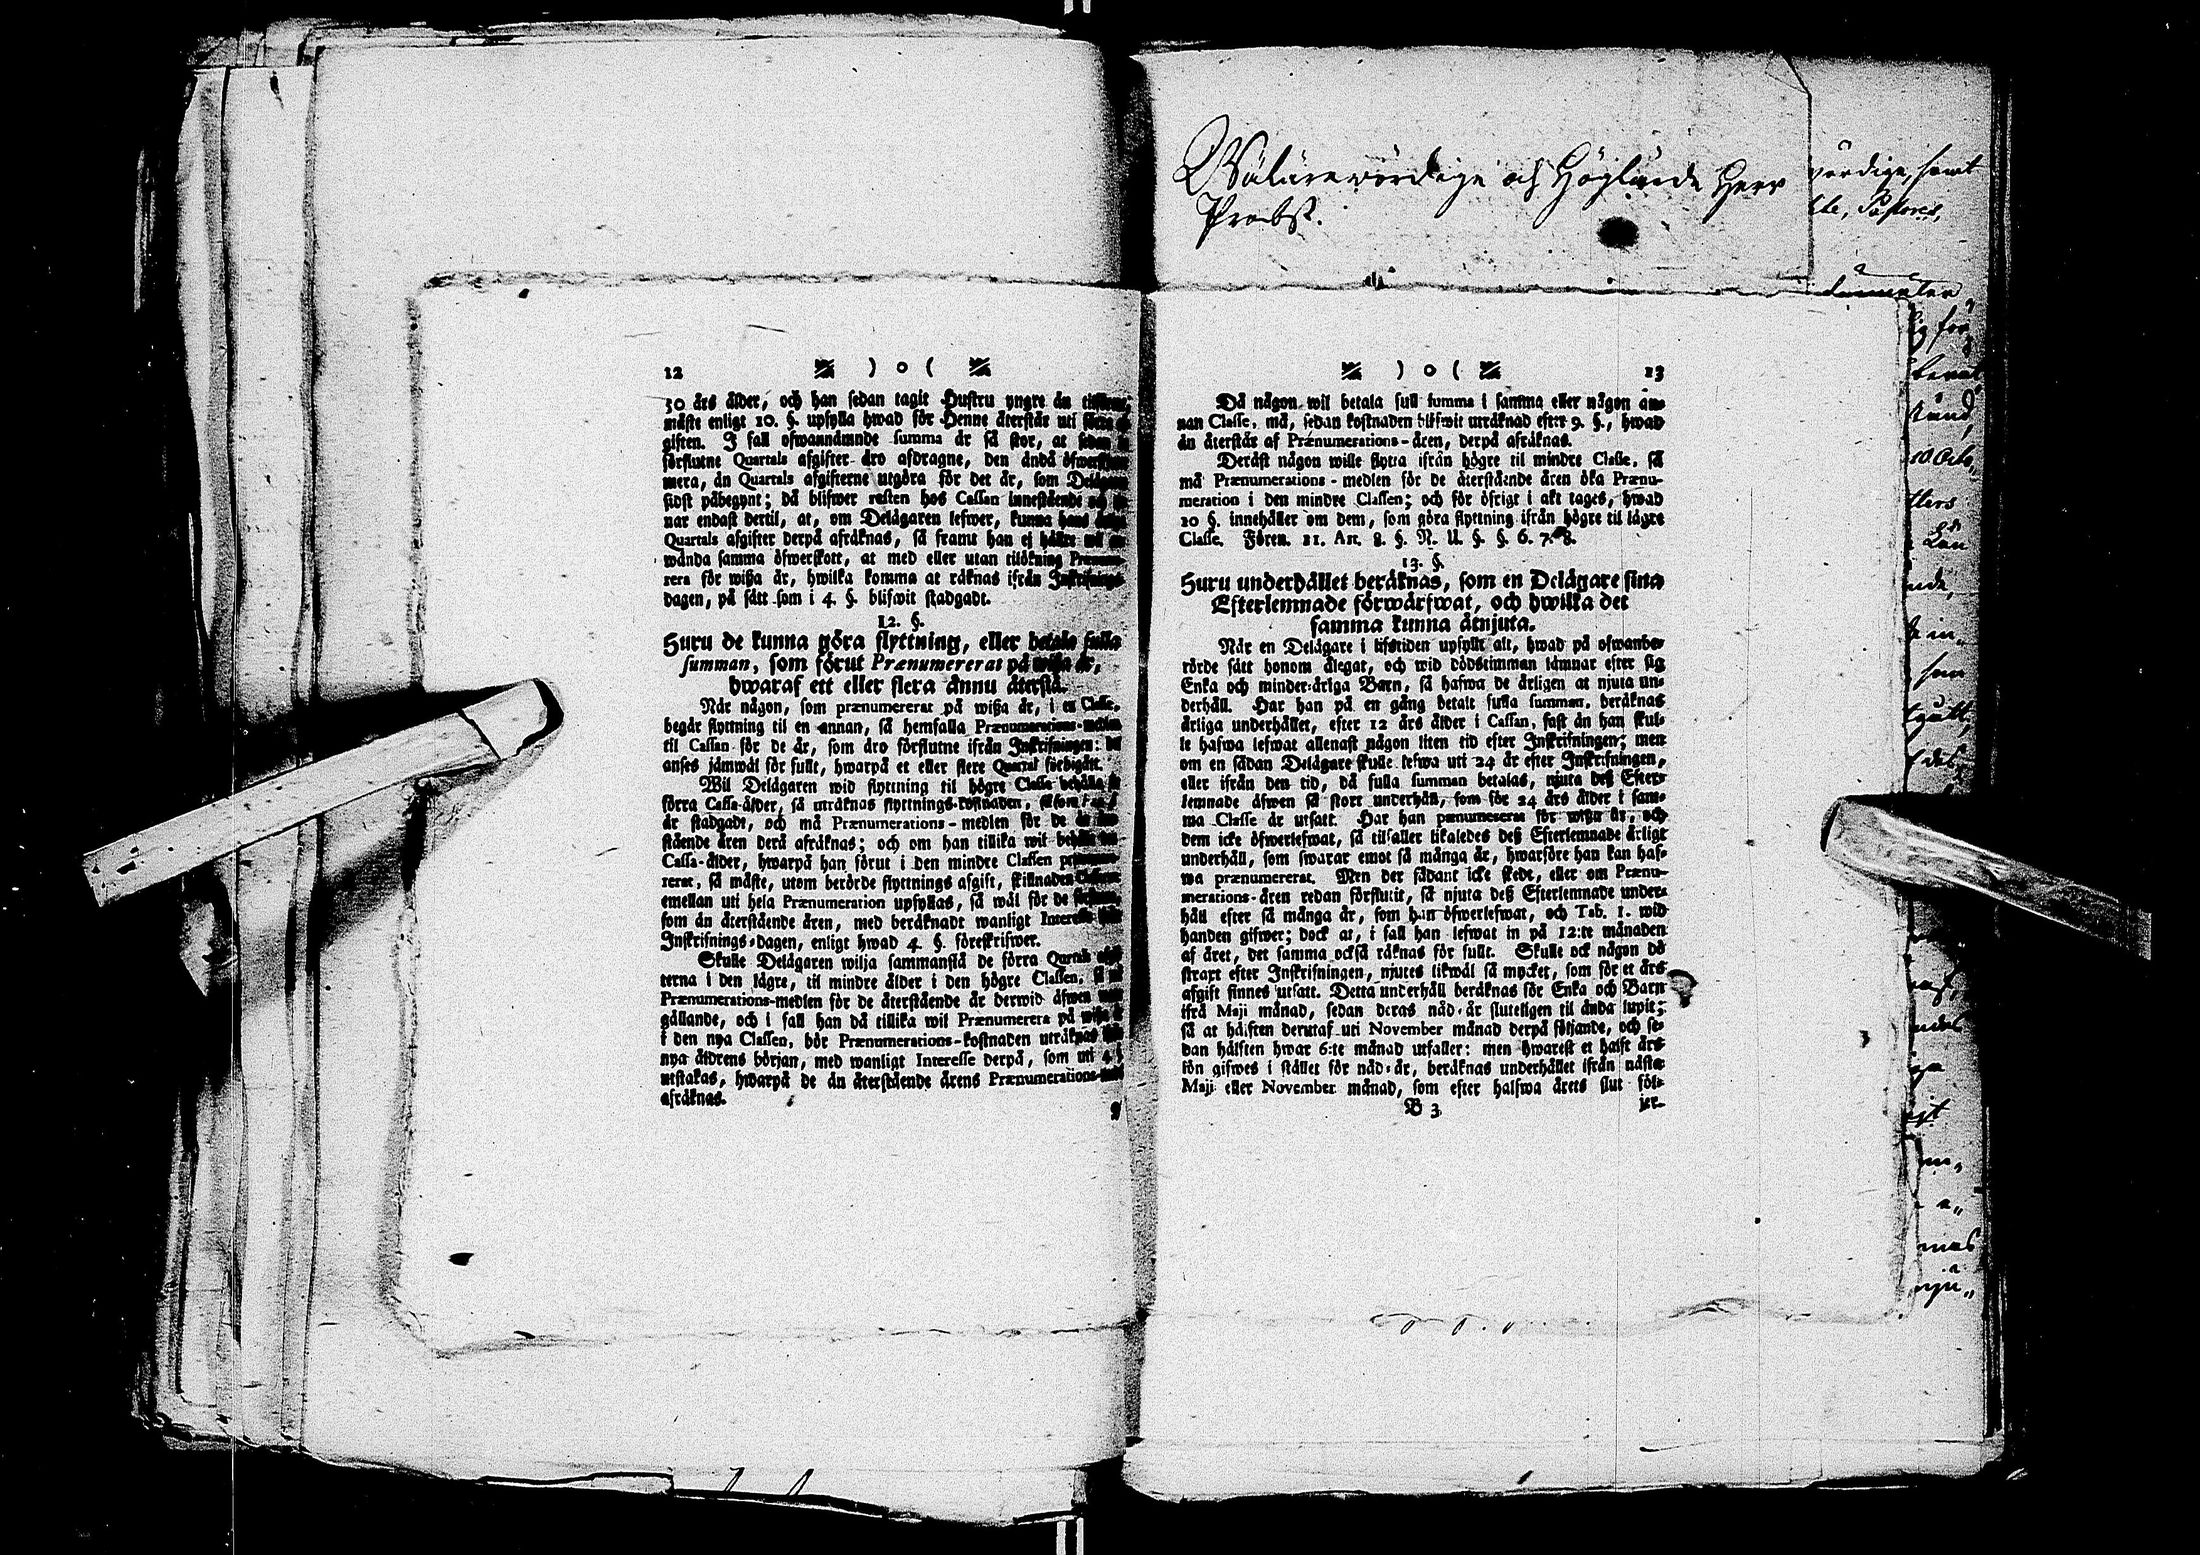 12 ) o (
30 års ålder, och han sedan tagit Hustru yngre än
måste enligt 10. §. upfylla hwad för Henne återstår uti
giften. I fall ofwannämnde summa är så stor, at sedan
förflutne Quartals afgifter äro afdragne, den ändå
mera, än Quartals afgifterne utgöra för det år, som
sidst påbegynt; då blifwer resten hos Cassan innestående
nar endast dertil, at, om Delägaren lefwer, kunna hans
Quartals afgifter derpå afräknas, så framt han ej
wända samma öfwerskott, at med eller utan tilökning
rera för wißa år, hwilka komma at räknas ifrån Inskrifnings-
dagen, på sätt som i 4. §. blifwit stadgadt.
12. §.
Huru de kunna göra flyttning, eller betala fulla
summan, som förut Prænumererat på wißa år,
hwaraf ett eller flera ännu återstå.
När någon, som prænumererat på wißa år, i en Classe,
begär flyttning til en annan, så hemfalla Prænumerations-medlen
til Cassan för de år, som äro förflutne ifrån Inskrifningen: då
anses jämwäl för fullt, hwarpå et eller flere Quartal förbigått.
Wil Delägaren wid flyttning til högre Classe behålla
förra Cassa-ålder, så uträknas flyttnings-kostnaden,
är stadgadt, och må Prænumerations-medlen för de
stående åren derå afräknas; och om han tillika wil
Cassa-ålder, hwarpå han förut i den mindre Classen
rerat, så måste, utom berörde flyttnings afgift, skillnaden
emellan uti hela Prænumeration upfyllas, så wäl för de
som än återstående åren, med beräknadt wanligt Interesse
Inskrifnings-dagen, enligt hwad 4. §. föreskrifwer.
Skulle Delägaren wilja sammanslå de förra Quartals
terna i den lägre, til mindre ålder i den högre Classen,
Prænumerations-medlen för de återstående år derwid äfwen
gällande, och i fall han då tillika wil Prænumerera på
i den nya Classen, bör Prænumerations-kostnaden uträknas
nya ålderns början, med wanligt Interesse derpå, som uti 4. §.
utstakas, hwarpå de än återstående årens Prænumerations-
afräknas.
) o ( 13
Då någon wil betala full summa i samma eller någon an-
nan Classe, må, sedan kostnaden blifwit uträknad efter 9. §., hwad
än återstår af Prænumerations-åren, derpå afräknas.
Deräst någon wille flytta ifrån högre til mindre Classe, så
må Prænumerations-medlen för de återstående åren öka Prænu-
meration i den mindre Classen; och för öfrigt i akt tages, hwad
10 §. innehåller om dem, som göra flyttning ifrån högre til lägre
Classe. Fören. 11. Art. 8. §. N. U. §. §. 6. 7. 8.
13. §.
Huru underhållet beräknas, som en Delägare sina
Efterlemnade förwärfwat, och hwilka det
samma kunna åtnjuta.
När en Delägare i lifstiden upfyllt alt, hwad på ofwanbe-
rörde sätt honom ålegat, och wid dödstimman lämnar efter sig
Enka och minder-åriga Barn, så hafwa de årligen at njuta un-
derhåll. Har han på en gång betalt fulla summan, beräknas
årliga underhållet, efter 12 års ålder i Cassan, fast än han skul-
le hafwa lefwat allenast någon liten tid efter Inskrifningen; men
om en sådan Delägare skulle lefwa utt 24 år efter Inskrifningen,
eller ifrån den tid, då fulla summan betalas, njuta deß Efter-
lemnade äfwen så stort underhåll, som för 24 års ålder i sam-
ma Classe är utsatt. Har han prænumererat för wißa år, och
dem icke öfwerlefwat, så tilfaller likaledes deß Efterlemnade årligt
underhåll, som swarar emot så många år, hwarföre han kan haf-
wa prænumererat. Men der sådant icke skedt, eller om Prænu-
merations-åren redan förflutit, så njuta deß Efterlemnade under-
håll efter så många år, som han öfwerlefwat, och Tab. I. wid
handen gifwer; dock at, i fall han lefwat in på 12:te månaden
af året, det samma också räknas för fullt. Skulle ock någon dö
strart efter Inskrifningen, njutes likwäl så mycket, som för et års
afgift finnes utsatt. Detta underhåll beräknas för Enka och Barn
ifrå Maji månad, sedan deras nåd-år sluteligen til ända lupit;
så at hälften derutaf uti November månad derpå följande, och se-
dan hälften hwar 6:te månad utfaller: men hwarest et halft års
lön gifwes i stället för nåd-år, beräknas underhållet ifrån nästa
Maji eller November månad, som efter halfwa årets slut föl-
B 3 jer.
Wälärewördige och Höglärde Herr
Probst.
wördige, samt
Pastores,